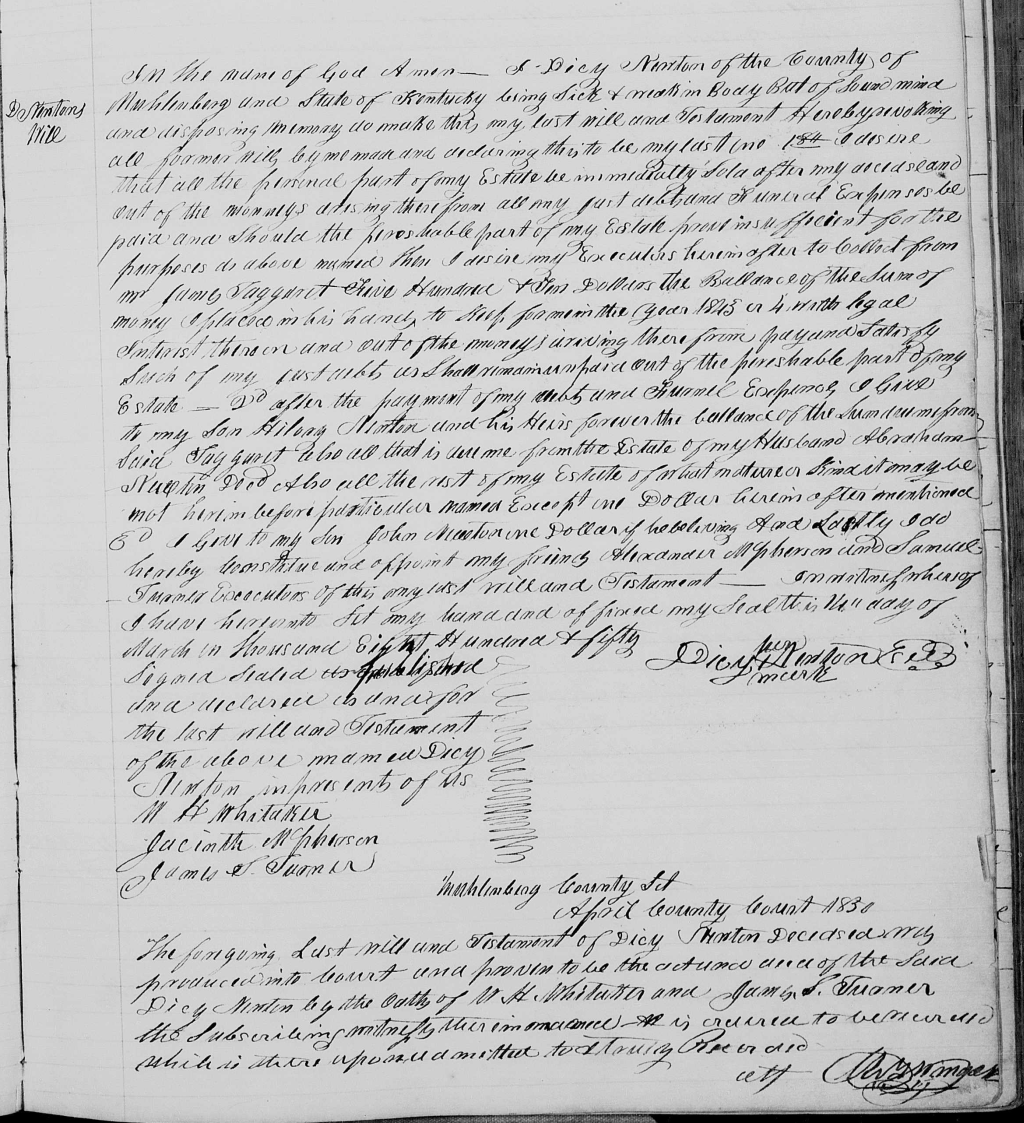 D. Newtons
Will
In the name of God Amen — I Dicy Newton of the County of
Muhlenberg and State of Kentucky being Sick & weak in Body But of Sound mind
and disposing memory do make this my last will and Testament Hereby revoking
all former wills by me made and declaring this to be my last one 184 I desire
that all the personal part of my Estate be immediatly Sold after my decease and
out of the monneys arising there from all my just debts and Funeral Expenses be
paid and Should the perishable part of my Estate prove insufficient for the
purposes as above named then I desire my Executors herein after to Collect from
mr James Taggart Five Hundred & Ten Dollars the Ballance of the Sum of
money I placed in his hands to Keep for me in the year 1843 or 4 with legal
Interest thereon and out of the moneys arising there from pay and Satisfy
Such of my just debts as Shall remain unpaid out of the pereshable part of my
Estate — 2d after the payment of my debts and Funerel Expences I Give
to my Son Hilory Newton and his Heirs forever the ballance of the Sum due me from
Said Taggart also all that is due me from the Estate of my Husband Abraham
Newton Decd Also all the rest of my Estate of what nature or Kind it may be
not herein before particular named Except one Dollar herein after mentioned
I Give to my Son John Newton one Dollar if he be living And Lastly I do
hereby Constitue and appoint my friends Alexander McPherson and Samuel
Turner Executors of this my last will and Testament — In witness whereof
I have hereunto Set my hand and affixed my Seal this day of
March in Thousand Eight Hundred & fifty
Dicy her X Newton
mark
Signed Sealed published
and declared as and for
the last will and Testament
of the above named Dicy
Newton in presents of us
W H Whitaker
Jacinth McPherson
James S. Turner
Muhlenberg County Sct
April County Court 1850
The forgoing Last will and Testament of Dicy Newton Deceased was
produced into Court and proven to be the act and deed of the Said
Dicy Newton by the Oaths of W H Whitaker and James S. Turner
the Subscribing witnesses therein named is ordered to be recorded
which is there upon admitted to & truly Recorded
att Wing